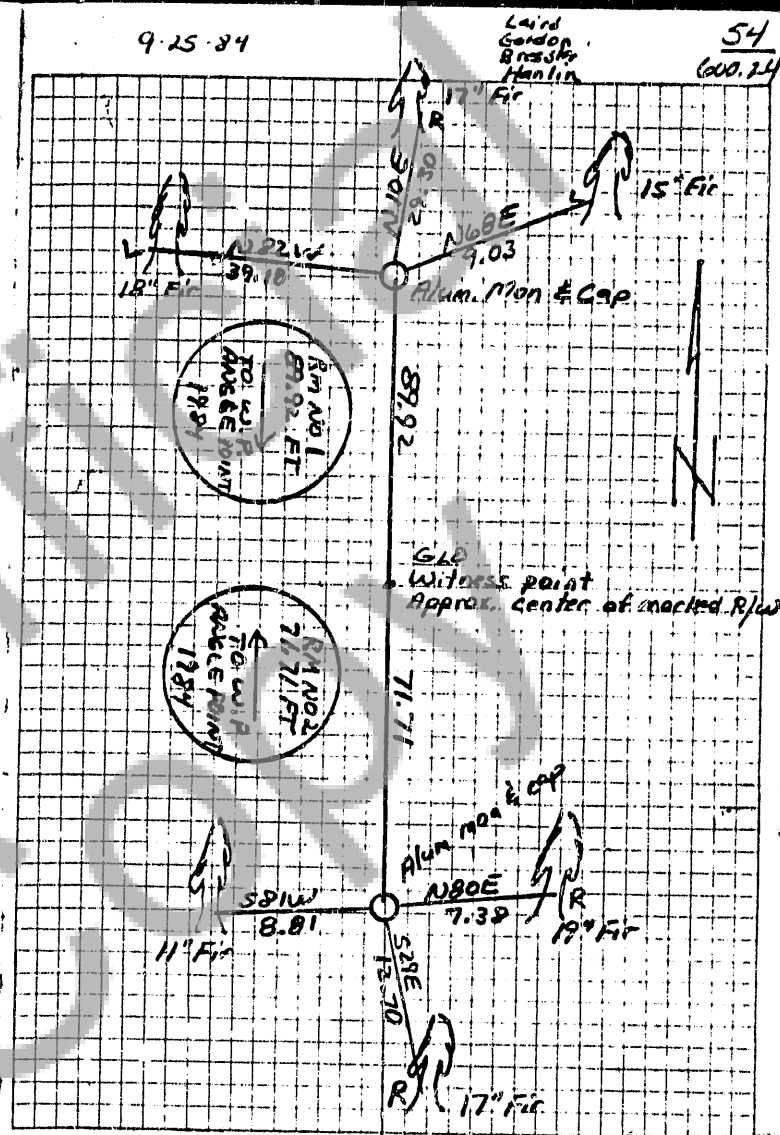 9-25-84
Laird
Gordon
Bressler
Hanlin
54
600.24
17" Fir
R
N10E
15" Fir
L
N68E
9.03
L
N82W
39.18
18" Fir
Alum. Mon & Cap
RM NO 1
89.92 FT
TO W.P.
ANGLE POINT
1984
89.92
N
GLO
Witness point
Approx. center of marked R/W
RM NO 2
71.71 FT
TO W.P.
ANGLE POINT
1984
71.71
Alum mon & cap
S81W
8.81
11" Fir
N80E
7.38
R
19" Fir
S29E
12.70
R
17" Fir
Copy